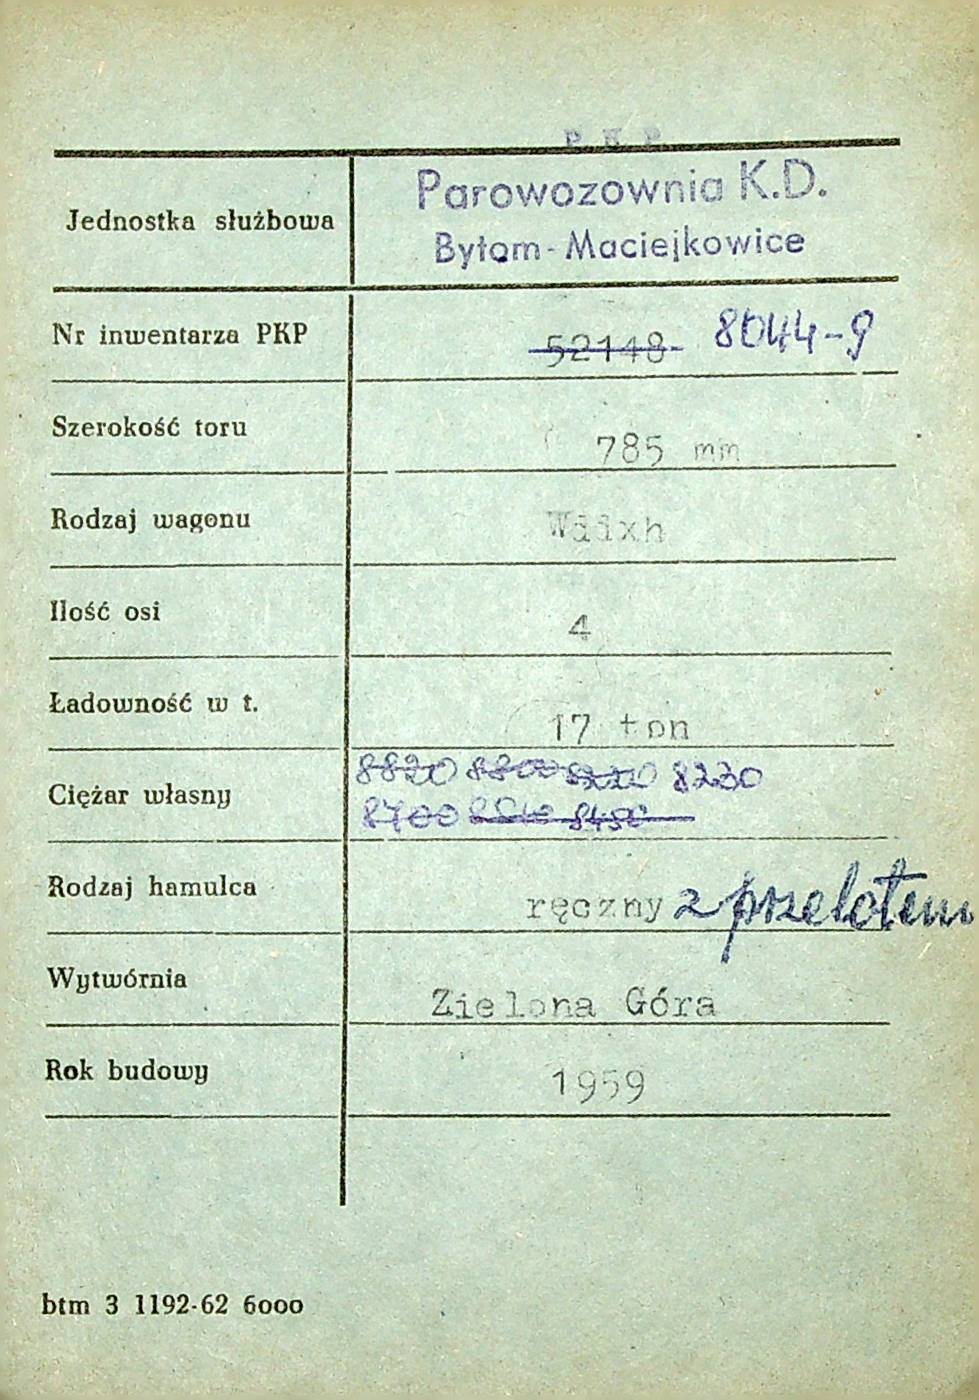 P. K. P.
Jednostka służbowa Parowozownia K.D.
Bytom-Maciejkowice
Nr inwentarza PKP 52148 8044-9
Szerokość toru 785 mm
Rodzaj wagonu Wddxh
Ilość osi 4
Ładowność w t. 17 ton
Ciężar własny 8820 8800 8230
8700 8450
Rodzaj hamulca ręczny z przelotem
Wytwórnia Zielona Góra
Rok budowy 1959
btm 3 1192-62 6000